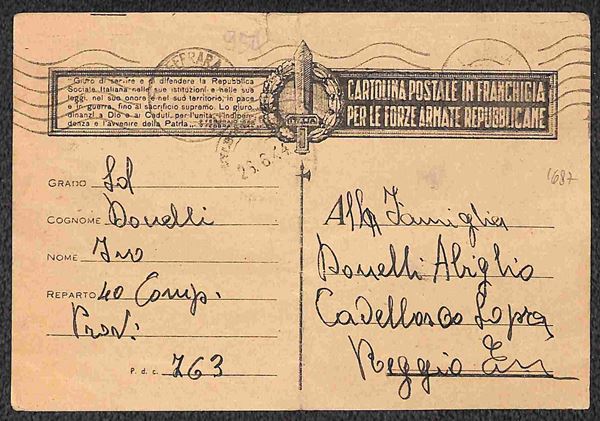 954
FERRARA
Giuro di servire e di difendere la Repubblica
Sociale Italiana nelle sue istituzioni e nelle sue
leggi, nel suo onore e nel suo territorio, in pace
e in guerra, fino al sacrificio supremo. Lo giuro
dinanzi a Dio e ai Caduti, per l'unità, l'indipen-
denza e l'avvenire della Patria.
CARTOLINA POSTALE IN FRANCHIGIA
PER LE FORZE ARMATE REPUBBLICANE
26.6.44
1687
GRADO Sol
COGNOME Donelli
NOME Ivo
REPARTO 40 Comp.
Prov.
P. d. c. 763
Alla Famiglia
Donelli Abiglio
Cadelbosco Sopra
Reggio Em